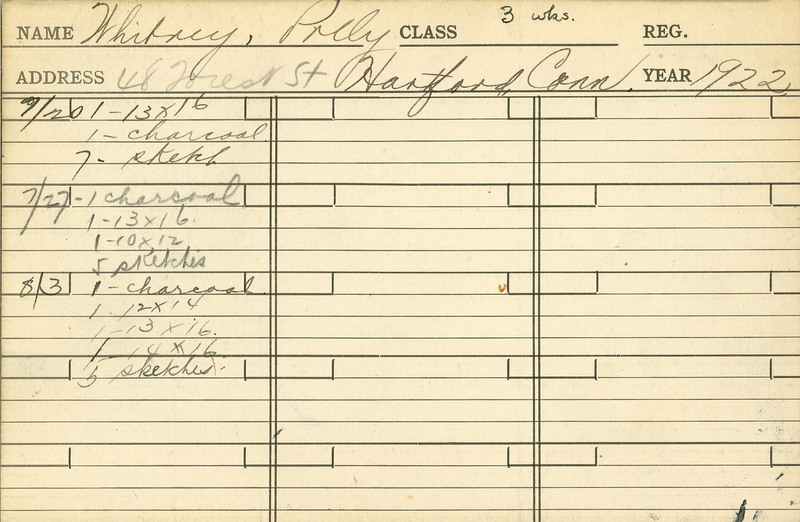 NAME Whitney, Polly CLASS 3 wks. REG.
ADDRESS 48 Forest St Hartford, Conn. YEAR 1922
7/20 1-13x16
1- charcoal
7- sketch
7/27 -1 charcoal
1-13x16.
1-10x12
5 sketches
8/3 1-charcoal
1. 12x14
1-13x16.
1 14x16.
5 sketches.